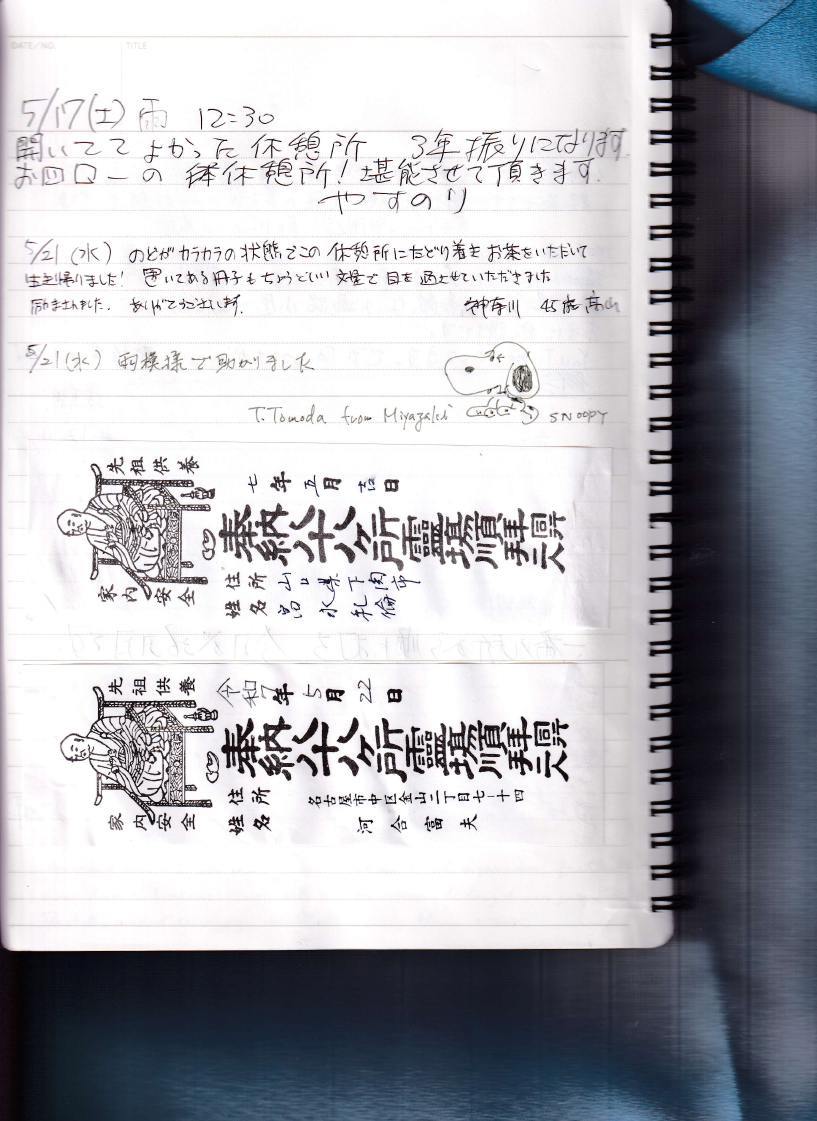 DATE/NO. TITLE
5/17(土) 雨 12:30
開いてて よかった 休憩所 3年振りになります
お四口一の 休憩所! 堪能させて頂きます.
やすのり
5/21 (水) のどがカラカラの状態でこの休憩所にたどり着き お茶をいただいて
生き帰りました! 置いてある冊子もちょうどいい文量で目を通させていただきました
励まされました. ありがとうございます. 神奈川 45歳 高山
5/21(水) 雨模様で助かりました
T.Tomoda from Miyazaki SNOOPY
先祖供養
七年 五月 吉日
奉納八十八ヶ所霊場順拝 同行二人
家内安全
住所 山口県下関市
姓名
先祖供養
令和7年 5月 22日
奉納八十八ヶ所霊場順拝 同行二人
家内安全
住所 名古屋市中区金山二丁目七-十四
姓名 河合富夫